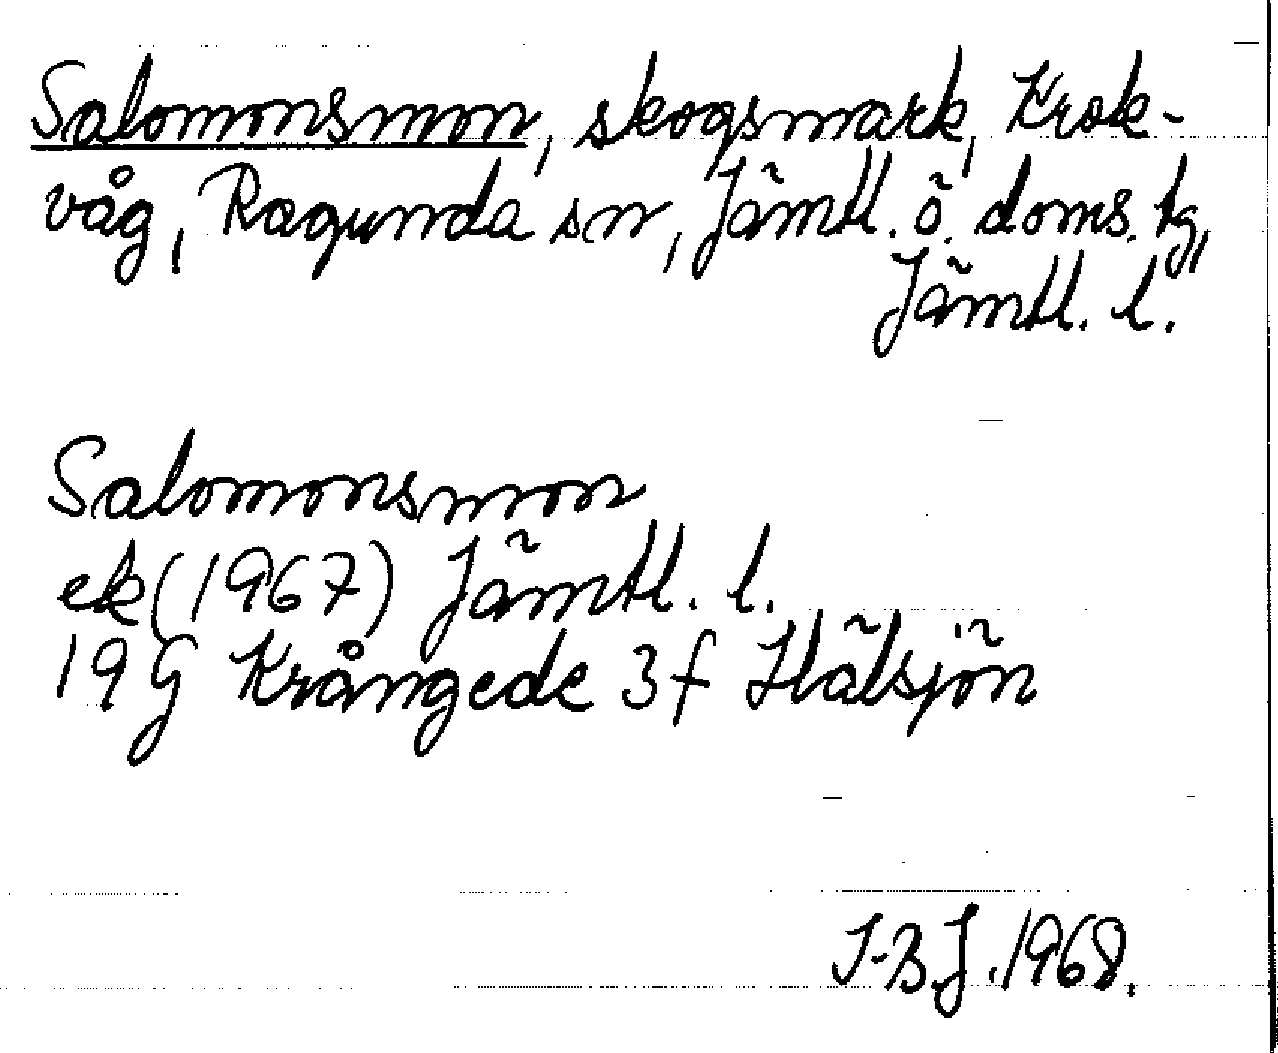 Salomonsmon, skogsmark, Krok-
våg, Ragunda sn, Jämtl. ö. doms. tg,
Jämtl. l.
Salomonsmon
ek (1967) Jämtl. l.
19 G Krångede 3 f Hälsjön
I-B.J. 1968.